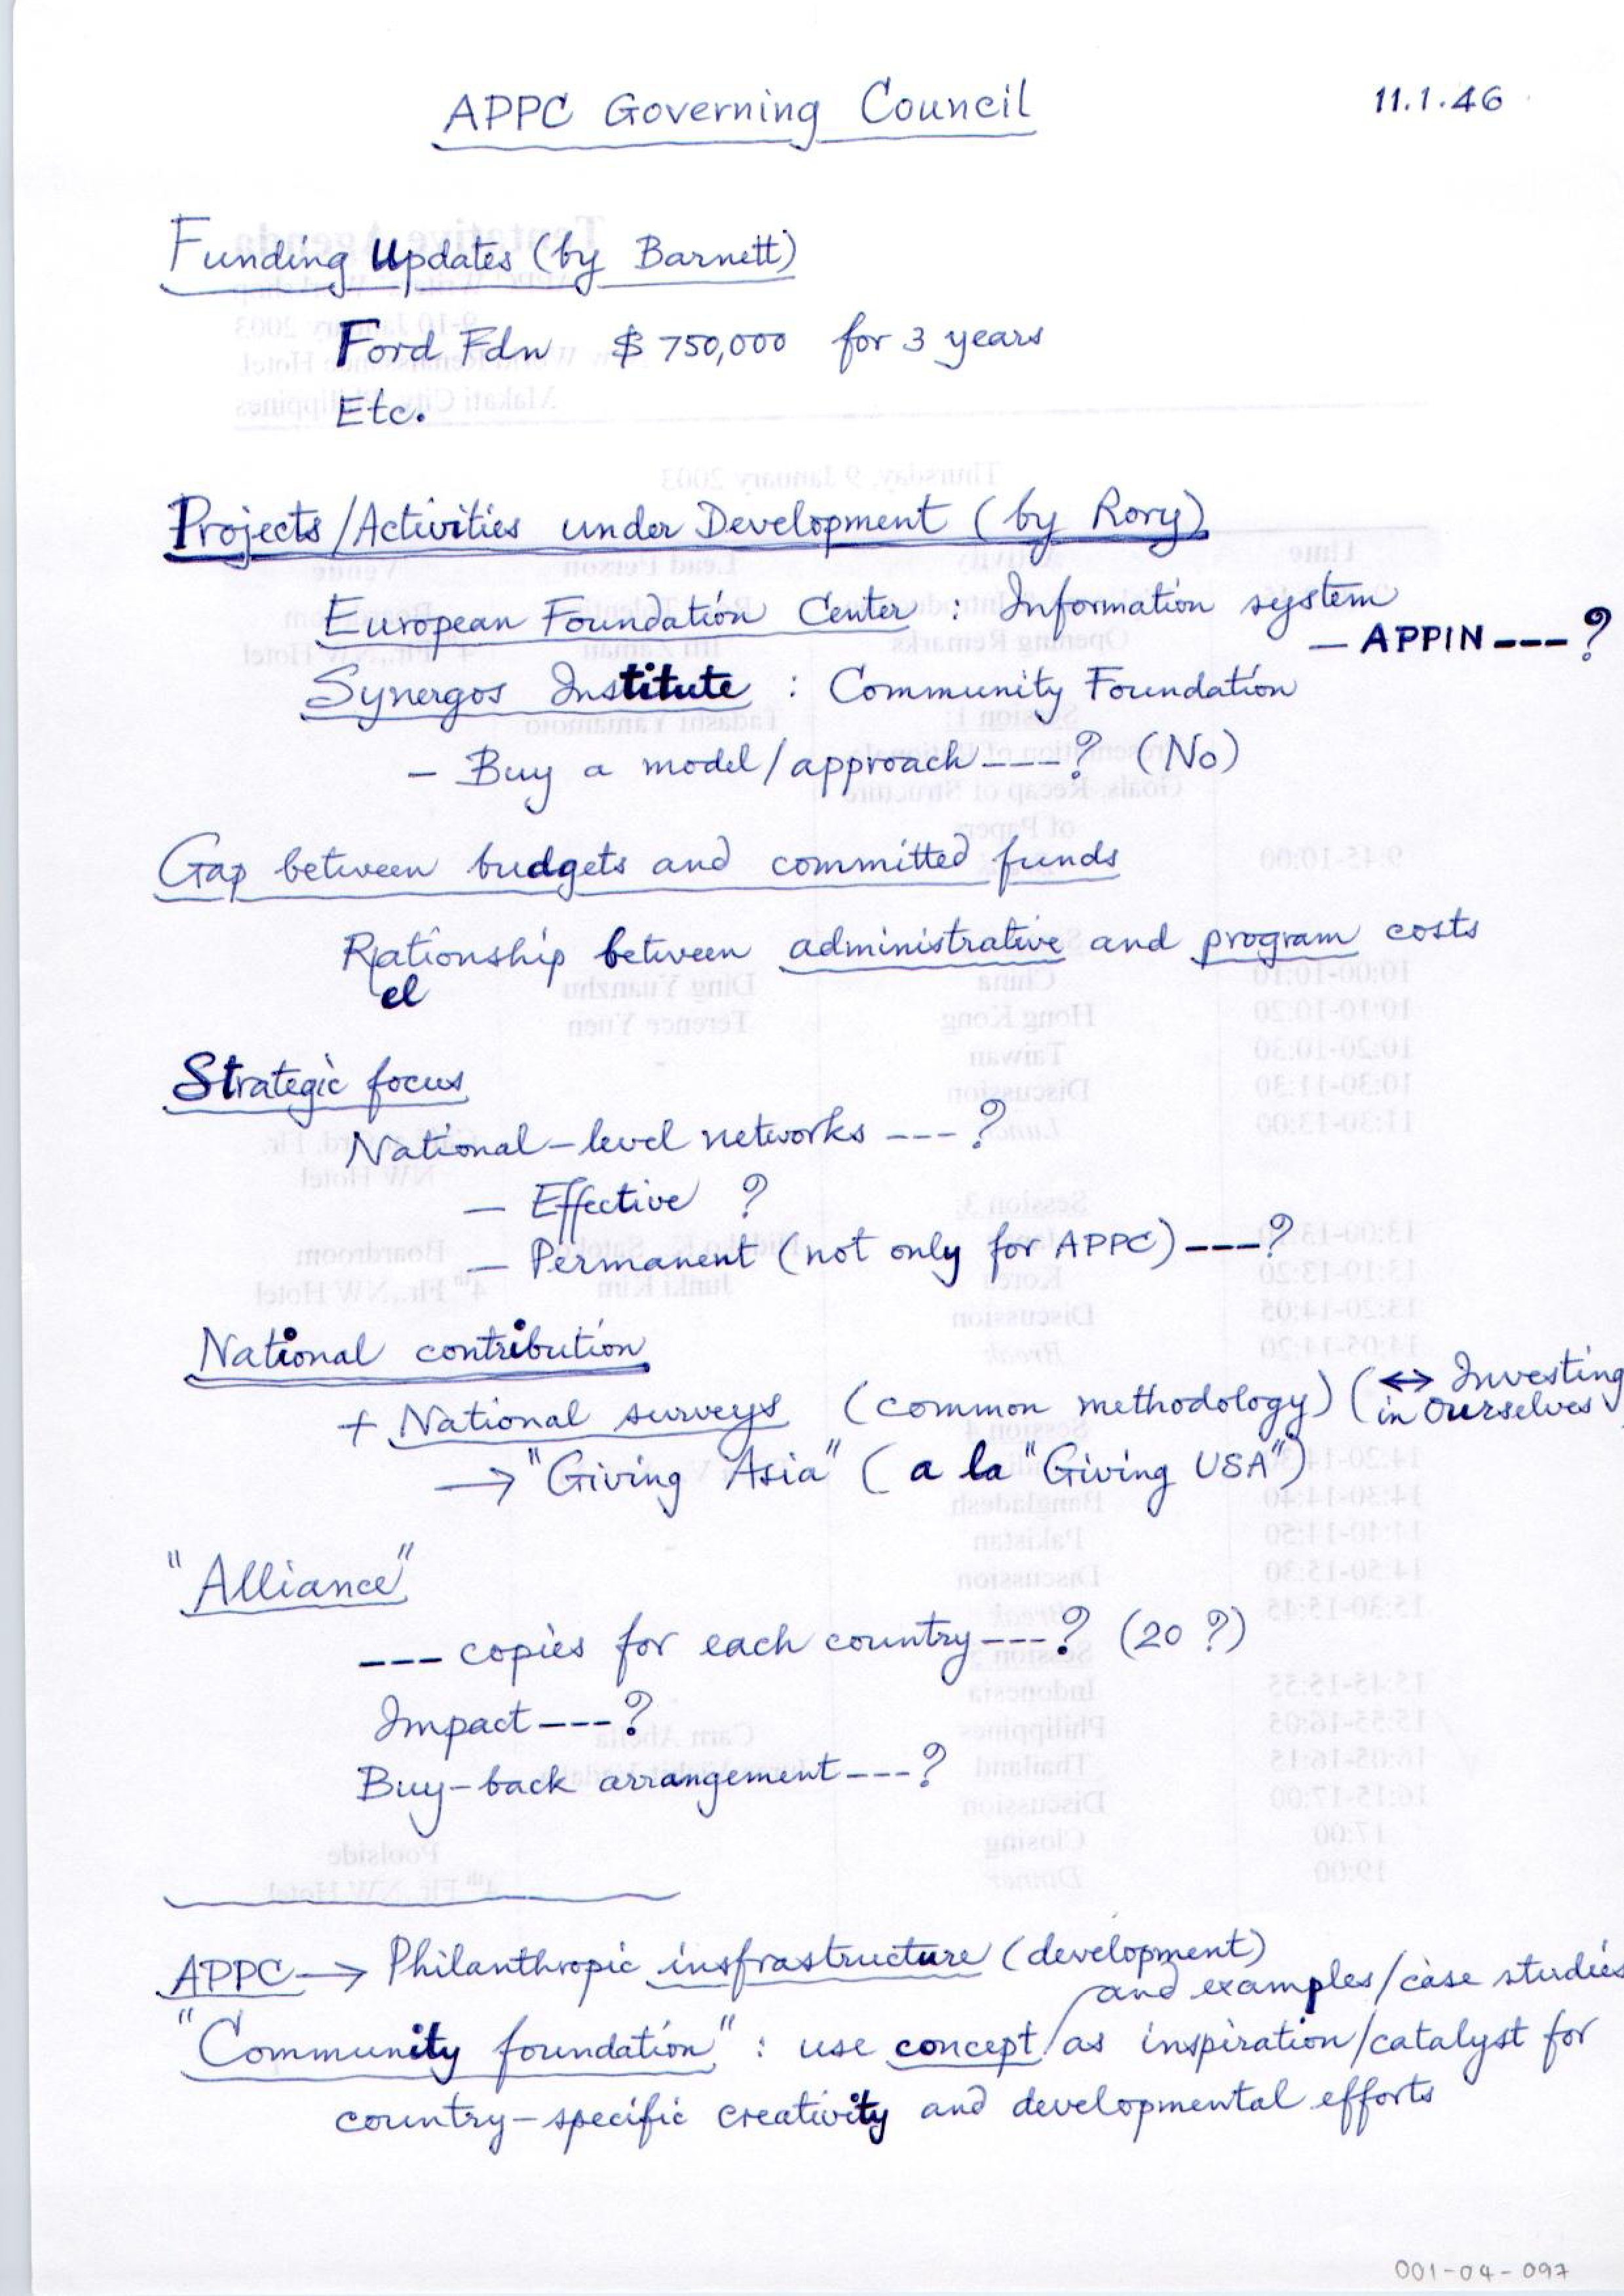 APPC Governing Council
11.1.46
Funding Updates (by Barnett)
Ford Fdn $ 750,000 for 3 years
Etc.
Projects/Activities under Development (by Rory)
European Foundation Center : Information system
— APPIN ---?
Synergos Institute : Community Foundation
– Buy a model/approach ---? (No)
Gap between budgets and committed funds
Rationship between administrative and program costs
el
Strategic focus
National-level networks ---?
– Effective ?
– Permanent (not only for APPC) ---?
National contribution
+ National surveys (common methodology) (↔ Investing
in Ourselves)
→ "Giving Asia" (a la "Giving USA")
"Alliance"
--- copies for each country ---? (20 ?)
Impact ---?
Buy-back arrangement ---?
APPC → Philanthropic insfrastructure (development)
and examples/case studies
"Community foundation" : use concept / as inspiration/catalyst for
country-specific creativity and developmental efforts
001-04-097